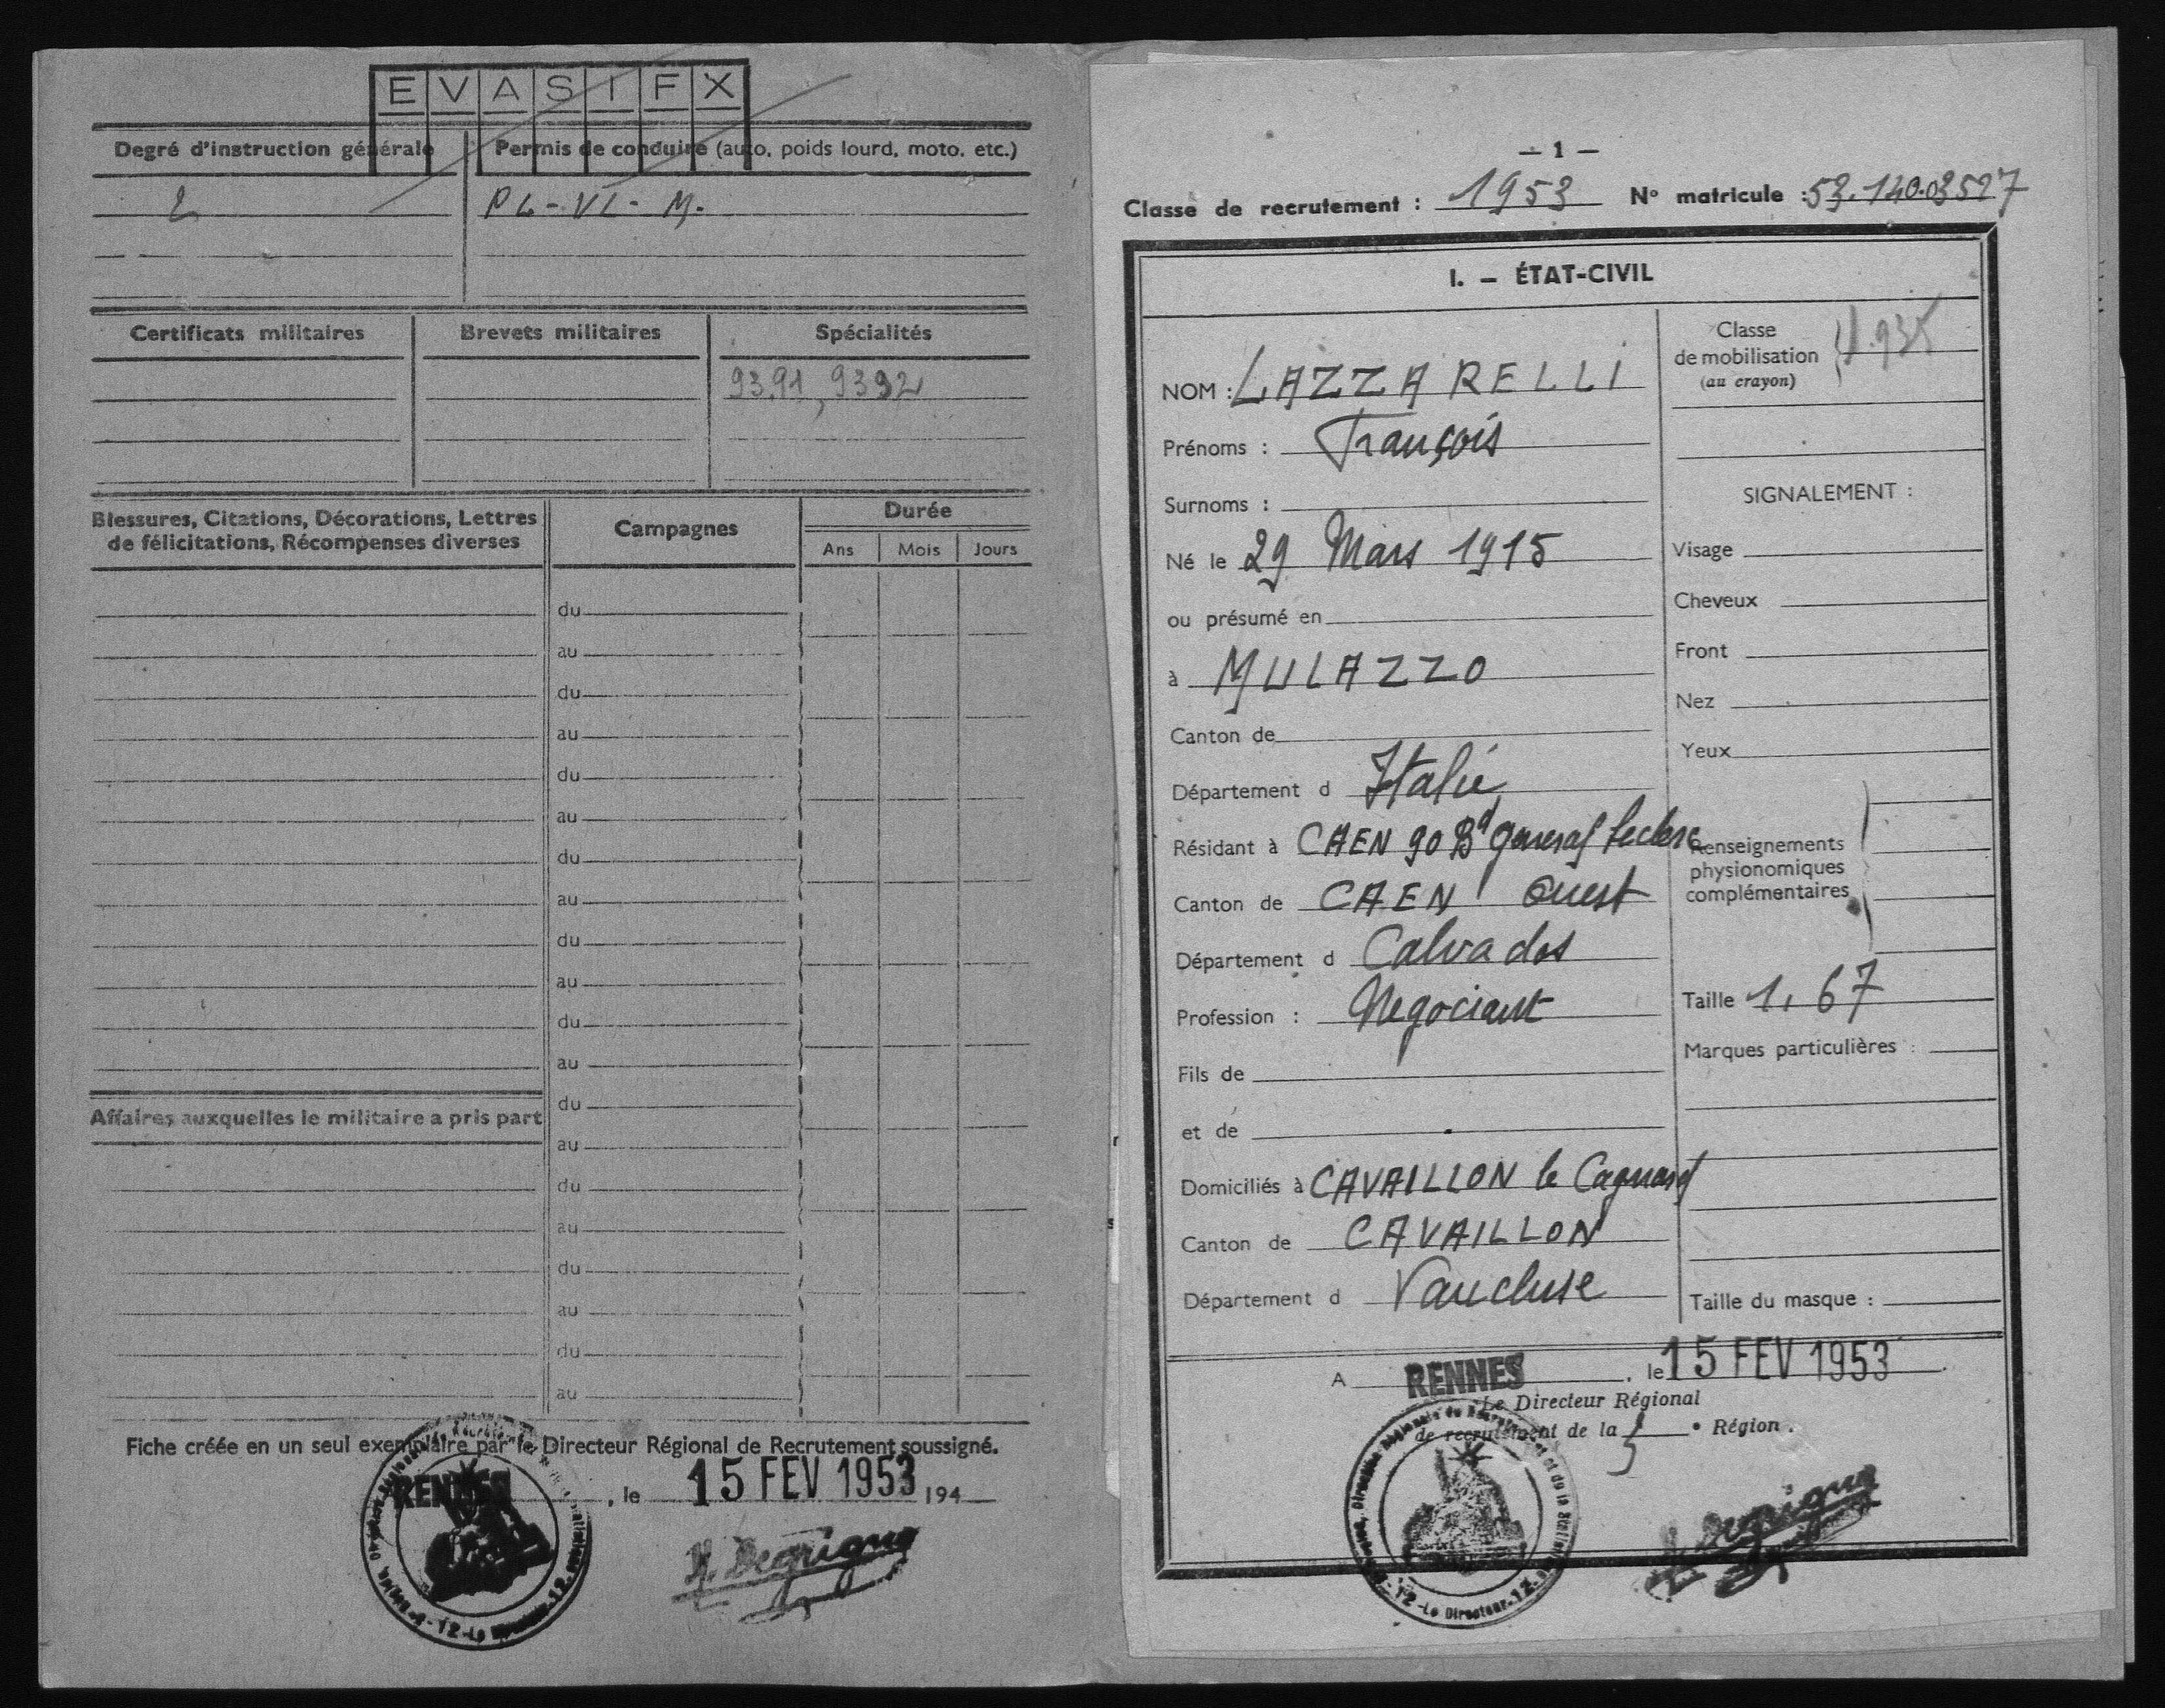 E V A S I F X
Degré d'instruction générale
Permis de conduire (auto, poids lourd, moto, etc.)
2
PL - VL - M.
Certificats militaires
Brevets militaires
Spécialités
93.91, 9392
Blessures, Citations, Décorations, Lettres
de félicitations, Récompenses diverses
Campagnes
Durée
Ans Mois Jours
du
au
du
au
du
au
du
au
du
au
du
au
Affaires auxquelles le militaire a pris part
du
au
du
au
du
au
du
au
Fiche créée en un seul exemplaire par le Directeur Régional de Recrutement soussigné.
RENNES, le 15 FEV 1953 194
— 1 —
Classe de recrutement : 1953 N° matricule : 53.140.03527
I. — ÉTAT-CIVIL
NOM : LAZZARELLI
Prénoms : François
Surnoms :
Né le 29 Mars 1915
ou présumé en
à MULAZZO
Canton de
Département d Italie
Résidant à CAEN 90 Bd General Leclerc
Canton de CAEN Ouest
Département d Calvados
Profession : Negociant
Fils de
et de
Domiciliés à CAVAILLON le Cagnard
Canton de CAVAILLON
Département d Vaucluse
Classe
de mobilisation
(au crayon)
1.935
SIGNALEMENT :
Visage
Cheveux
Front
Nez
Yeux
Renseignements
physionomiques
complémentaires
Taille 1,67
Marques particulières :
Taille du masque :
A RENNES, le 15 FEV 1953
Le Directeur Régional
de recrutement de la 3 e Région.